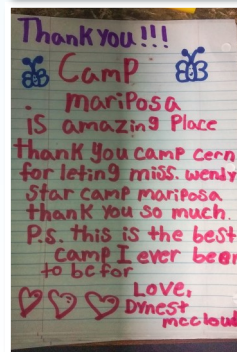 Thank you!!!
Camp
mariposa
is amazing Place
thank you camp cern
for leting miss. wendy
star camp mariposa
thank you so much.
P.s. this is the best
camp I ever been
to befor
Love,
Dynest
mccloud